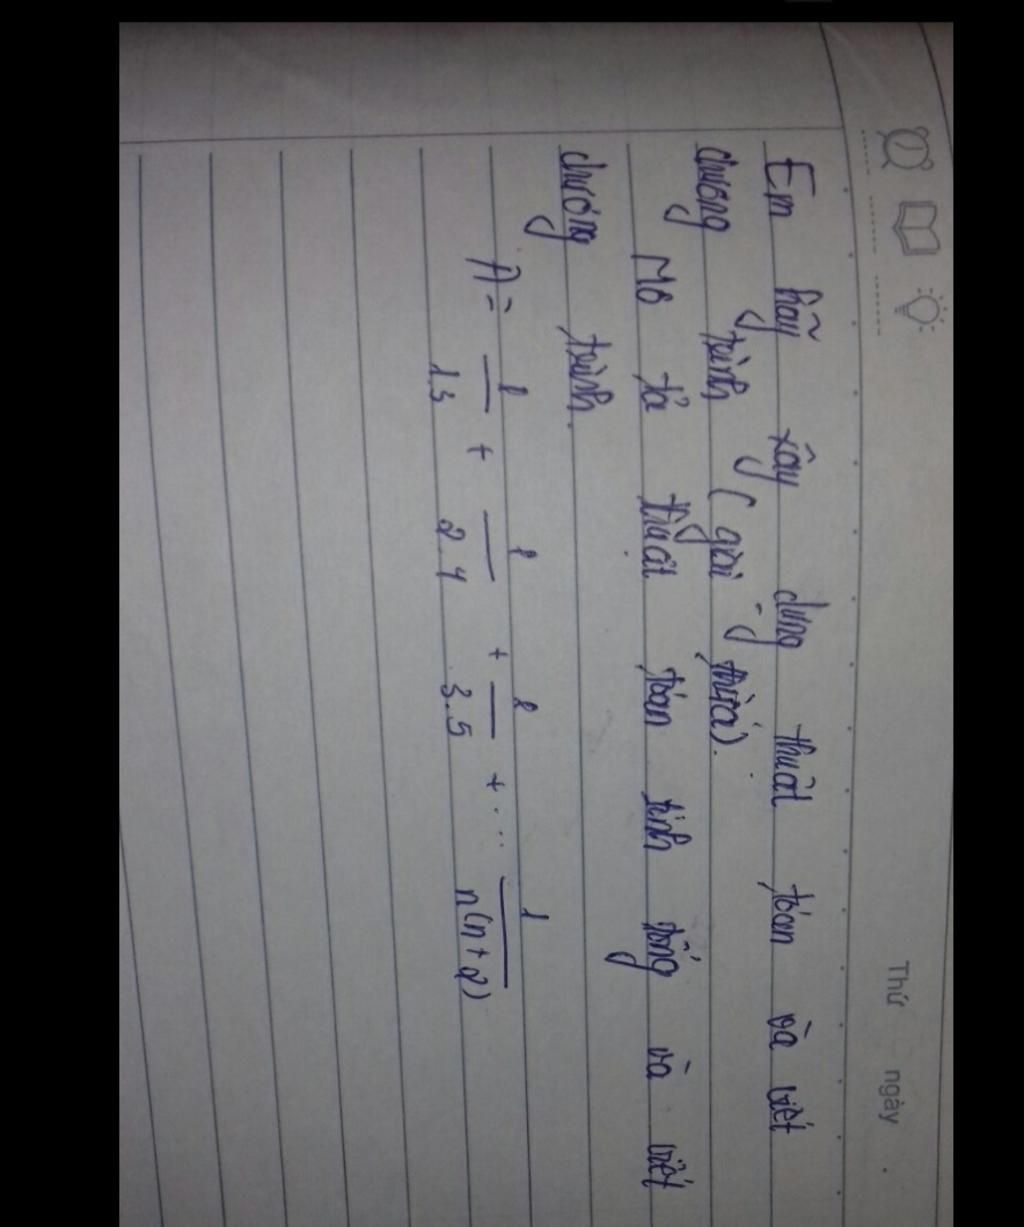 Thứ ngày
Em hãy xây dựng thuật toán và viết
chương trình (giai thừa).
Mô tả thuật toán tính tổng và viết
chương trình.
A = 1/1.3 + 1/2.4 + 1/3.5 + ... 1/n(n+2)